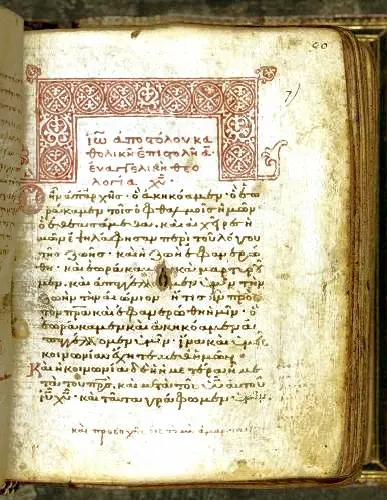 ἰω ἀποστόλου κα
θολικὴ ἐπιστολὴ α
εὐαγγελικὴ θεο
λογία χυ
Ὃ ἦν ἀπαρχῆς· ὃ ἀκηκόαμεν· ὃ ἑω
ράκαμεν τοῖς ὀφθαλμοῖς ἡμῶν·
ὃ ἐθεασάμεθα· καὶ αἱ χεῖρες ἡ
μῶν ἐψηλάφησαν περὶ τοῦ λόγου
τῆς ζωῆς· καὶ ἡ ζωὴ ἐφανερώ
θη· καὶ ἑωράκαμεν καὶ μαρτυροῦ
μεν. καὶ ἀπαγγέλλομεν ὑμῖν τὴν
ζωὴν τὴν αἰώνιον· ἥτις ἦν πρὸς
τὸν πρα καὶ ἐφανερώθη ἡμῖν· ὃ
ἑωράκαμεν καὶ ἀκηκόαμεν ἀ
παγγέλλομεν ὑμῖν· ἵνα καὶ ὑμεῖς
κοινωνίαν ἔχητε μεθ ἡμῶν·
Καὶ ἡ κοινωνία δὲ ἡ ἡμετέρα με
τὰ τοῦ πρς. καὶ μετὰ τοῦ υυ αὐτοῦ
ιυ χυ· καὶ ταῦτα γράφομεν ὑμῖν·
καὶ